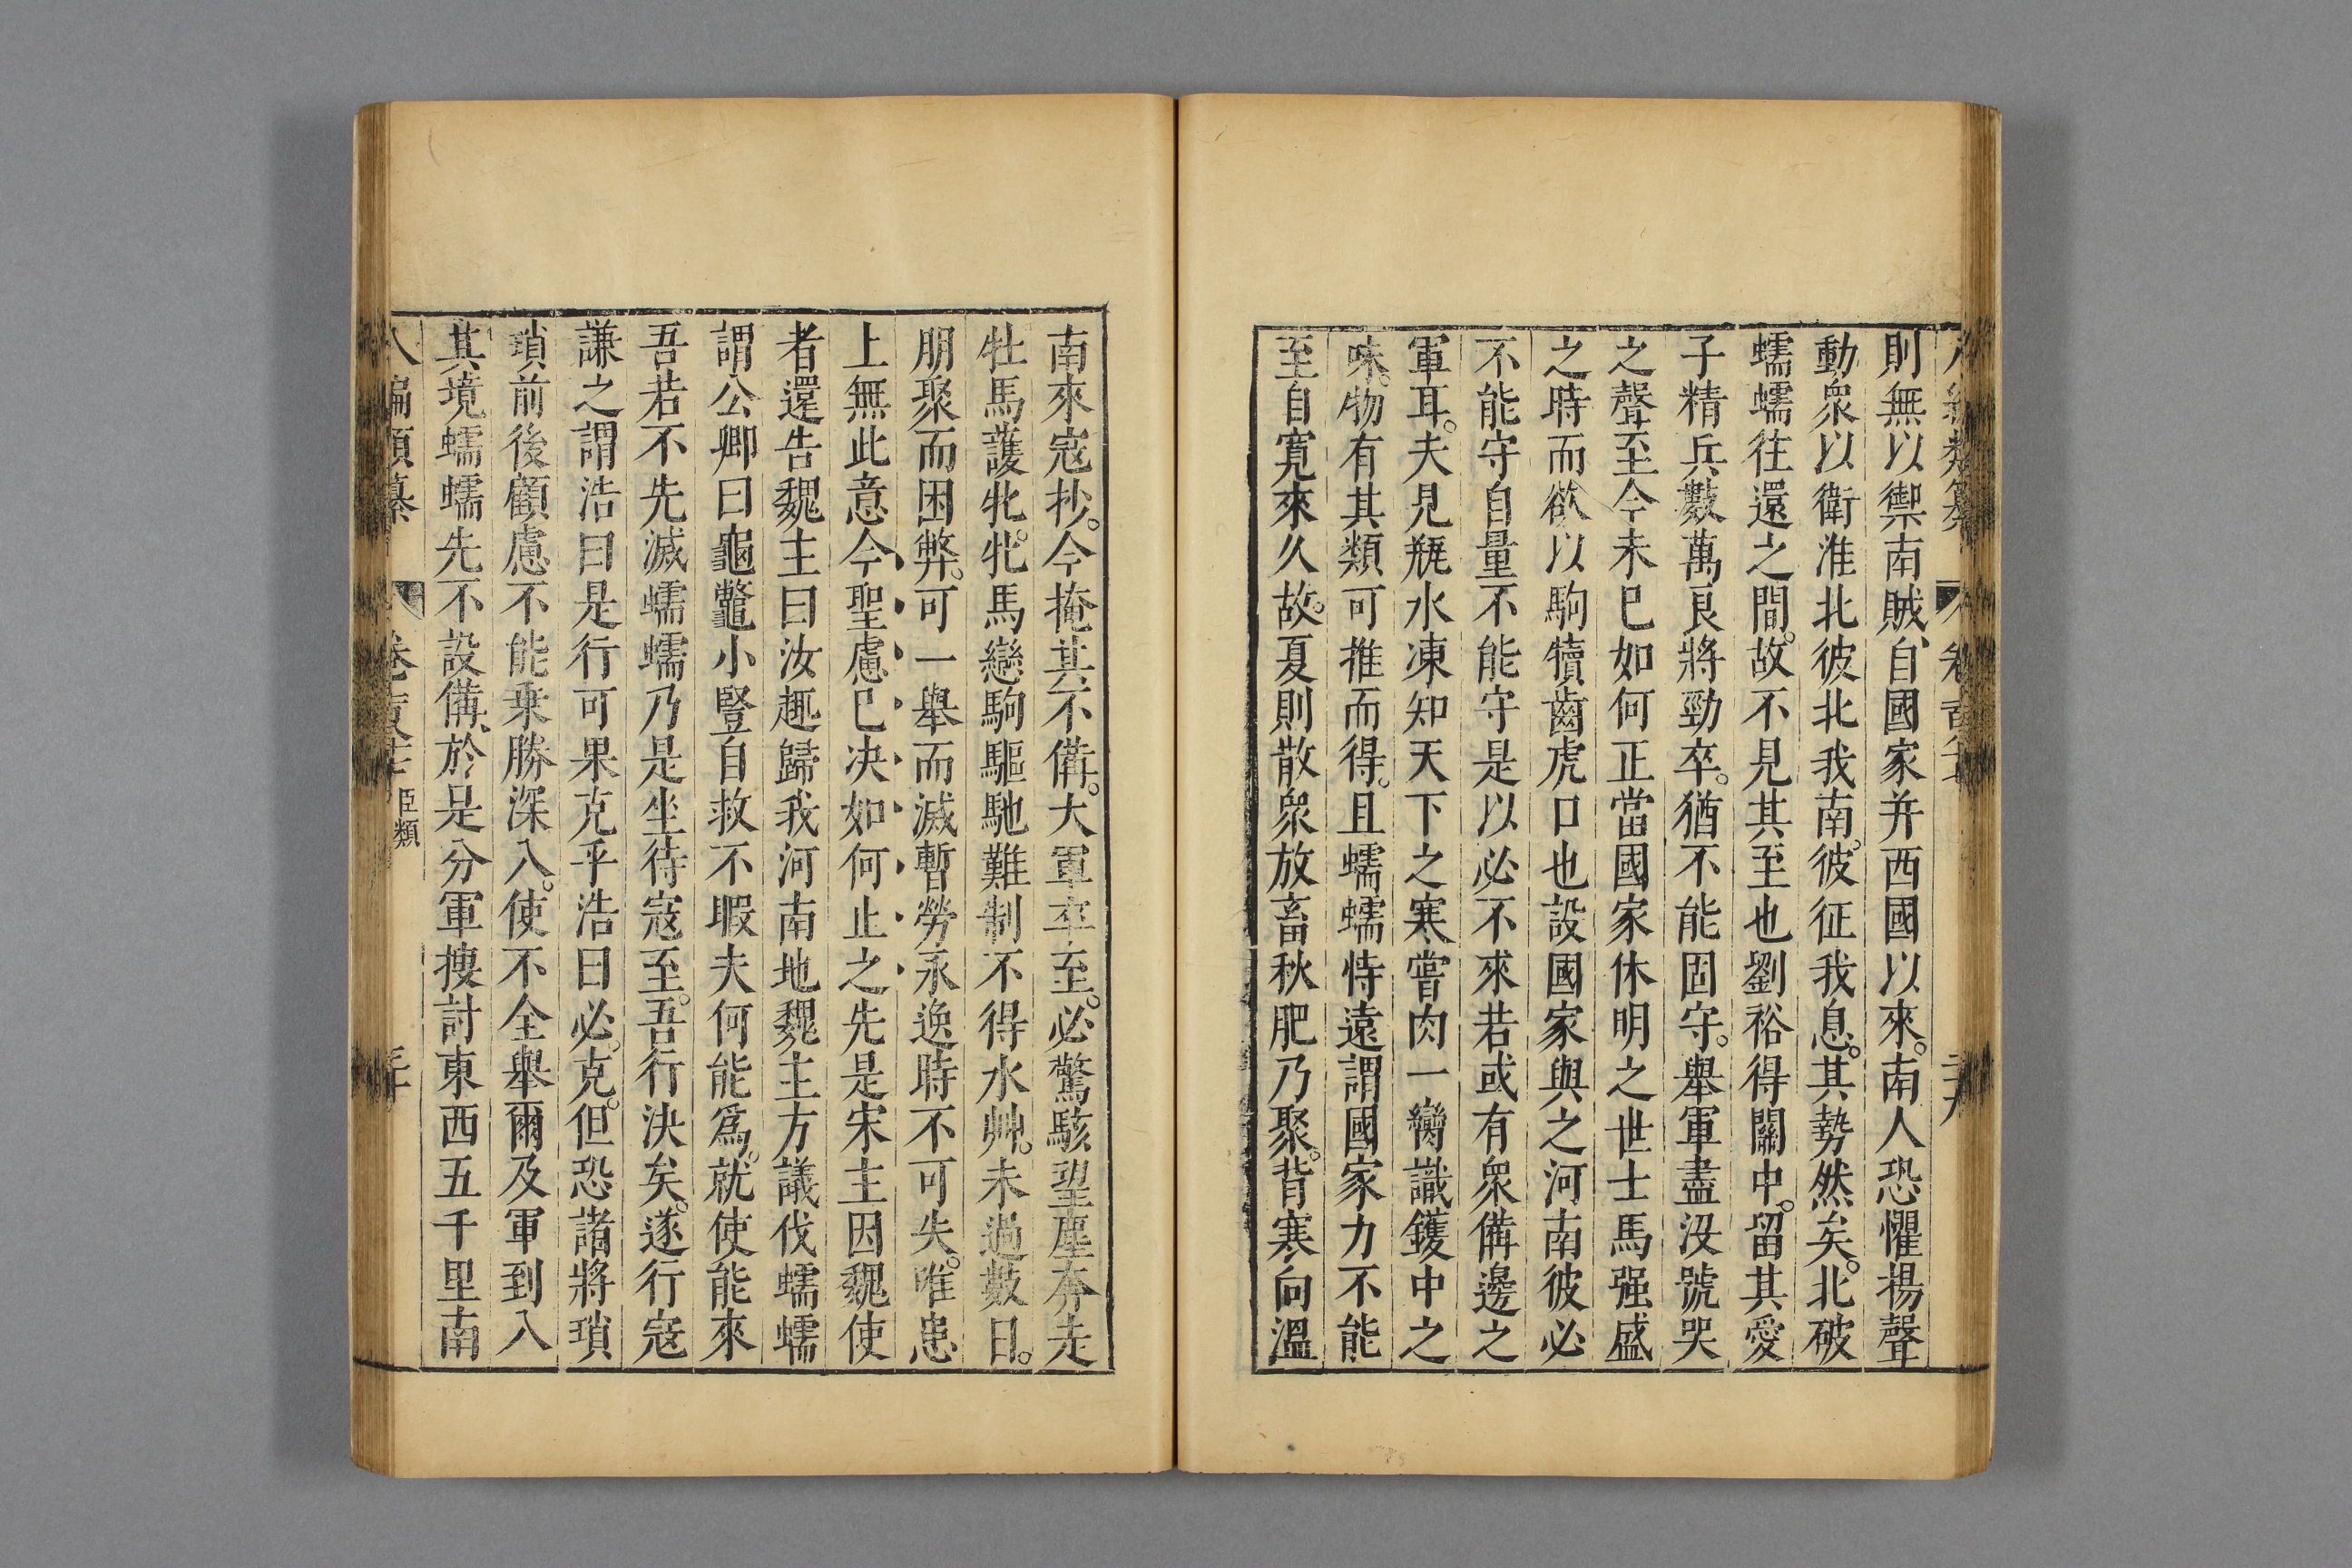 則無以禦南賊自國家并西國以來南人恐懼揚聲
動衆以衛淮北彼北我南彼征我息其勢然矣北破
蠕蠕往還之間故不見其至也劉裕得關中留其愛
子精兵數萬良將勁卒猶不能固守舉軍盡沒號哭
之聲至今未已如何正當國家休明之世士馬强盛
之時而欲以駒犢齒虎口也設國家與之河南彼必
不能守自量不能守是以必不來若或有衆備邊之
軍耳夫見瓶水凍知天下之寒嘗肉一臠識鑊中之
味物有其類可推而得且蠕蠕恃遠謂國家力不能
至自寬來久故夏則散衆放畜秋肥乃聚背寒向溫
南來寇抄今掩其不備大軍卒至必驚駭望塵奔走
牡馬護牝牝馬戀駒驅馳難制不得水艸未過數日
朋聚而困弊可一舉而滅暫勞永逸時不可失唯患
上無此意今聖慮已决如何止之先是宋主因魏使
者還告魏主曰汝趣歸我河南地魏主方議伐蠕蠕
謂公卿曰龜鼈小豎自救不暇夫何能爲就使能來
吾若不先滅蠕蠕乃是坐待寇至吾行決矣遂行寇
謙之謂浩曰是行可果克乎浩曰必克但恐諸將瑣
瑣前後顧慮不能乗勝深入使不全舉爾及軍到入
其境蠕蠕先不設備於是分軍搜討東西五千里南
八編類纂 卷 臣類